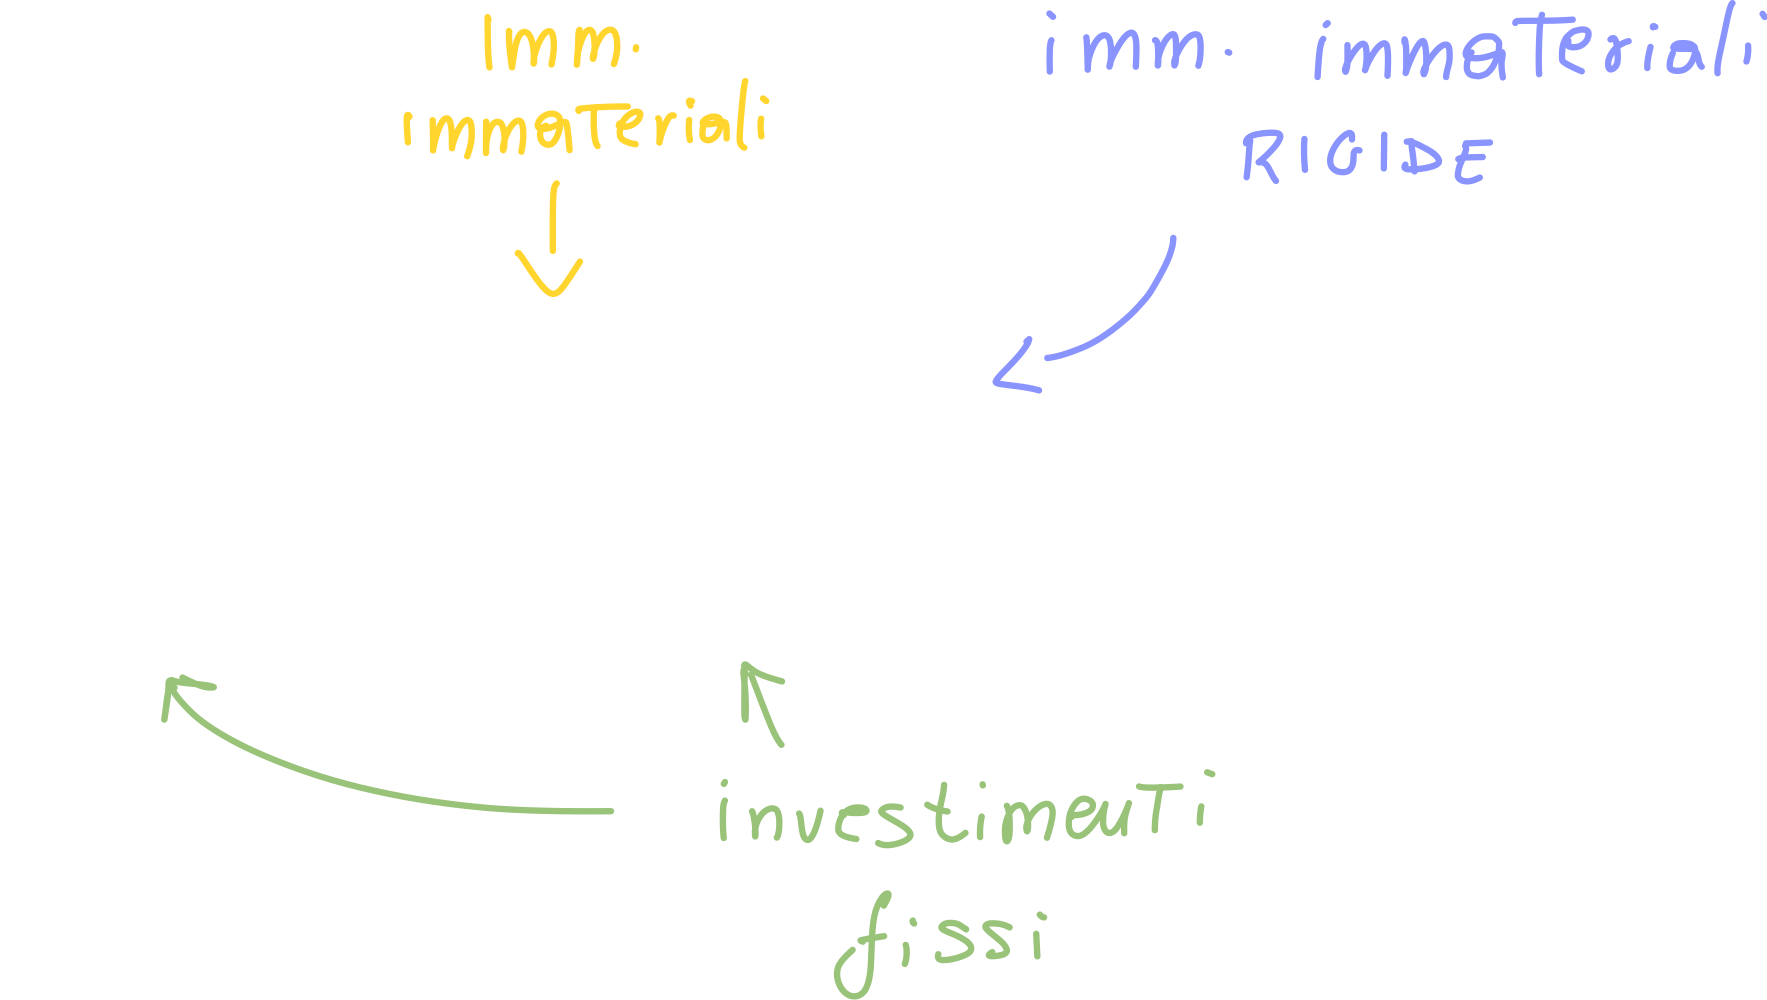 Imm.
immateriali
imm. immateriali
RIGIDE
investimenti
fissi